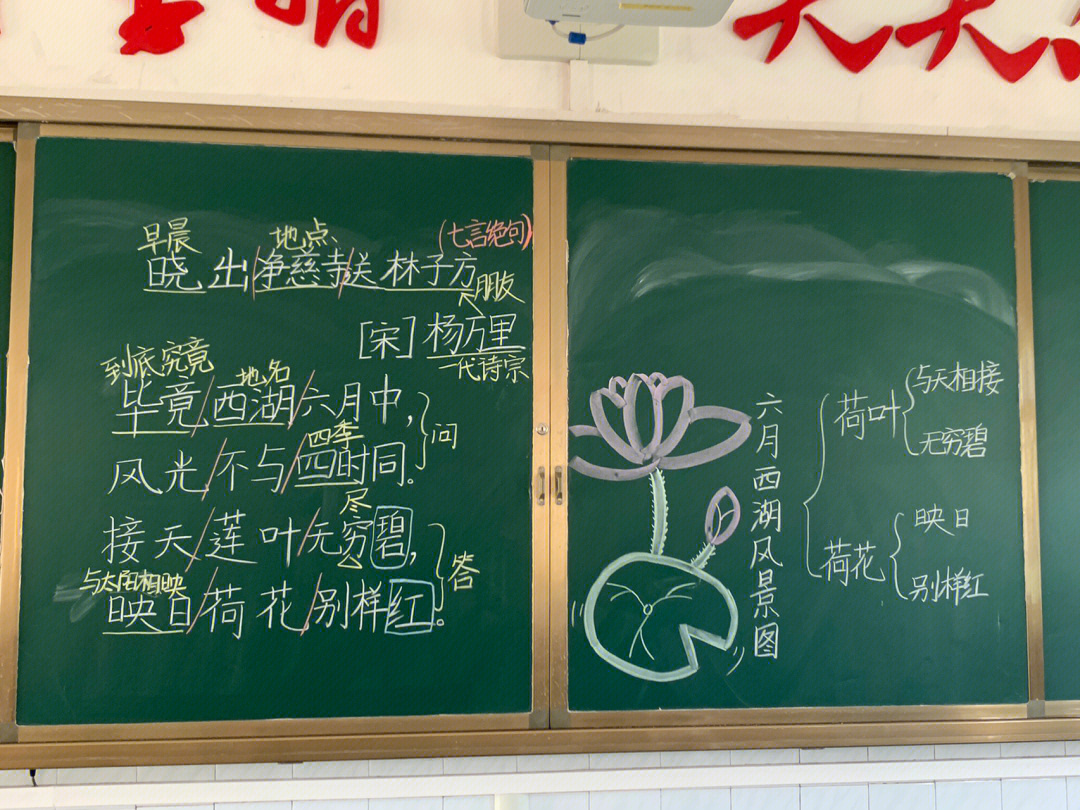 天天
早晨 地点 (七言绝句)
晓出/净慈寺/送林子方
朋友
[宋] 杨万里
一代诗宗
到底究竟 地名
毕竟/西湖/六月中,
四季
风光/不与/四时同。
问
尽
接天/莲叶/无穷碧,
与太阳相映
映日/荷花/别样红。
答
六月西湖风景图
荷叶
与天相接
无穷碧
荷花
映日
别样红